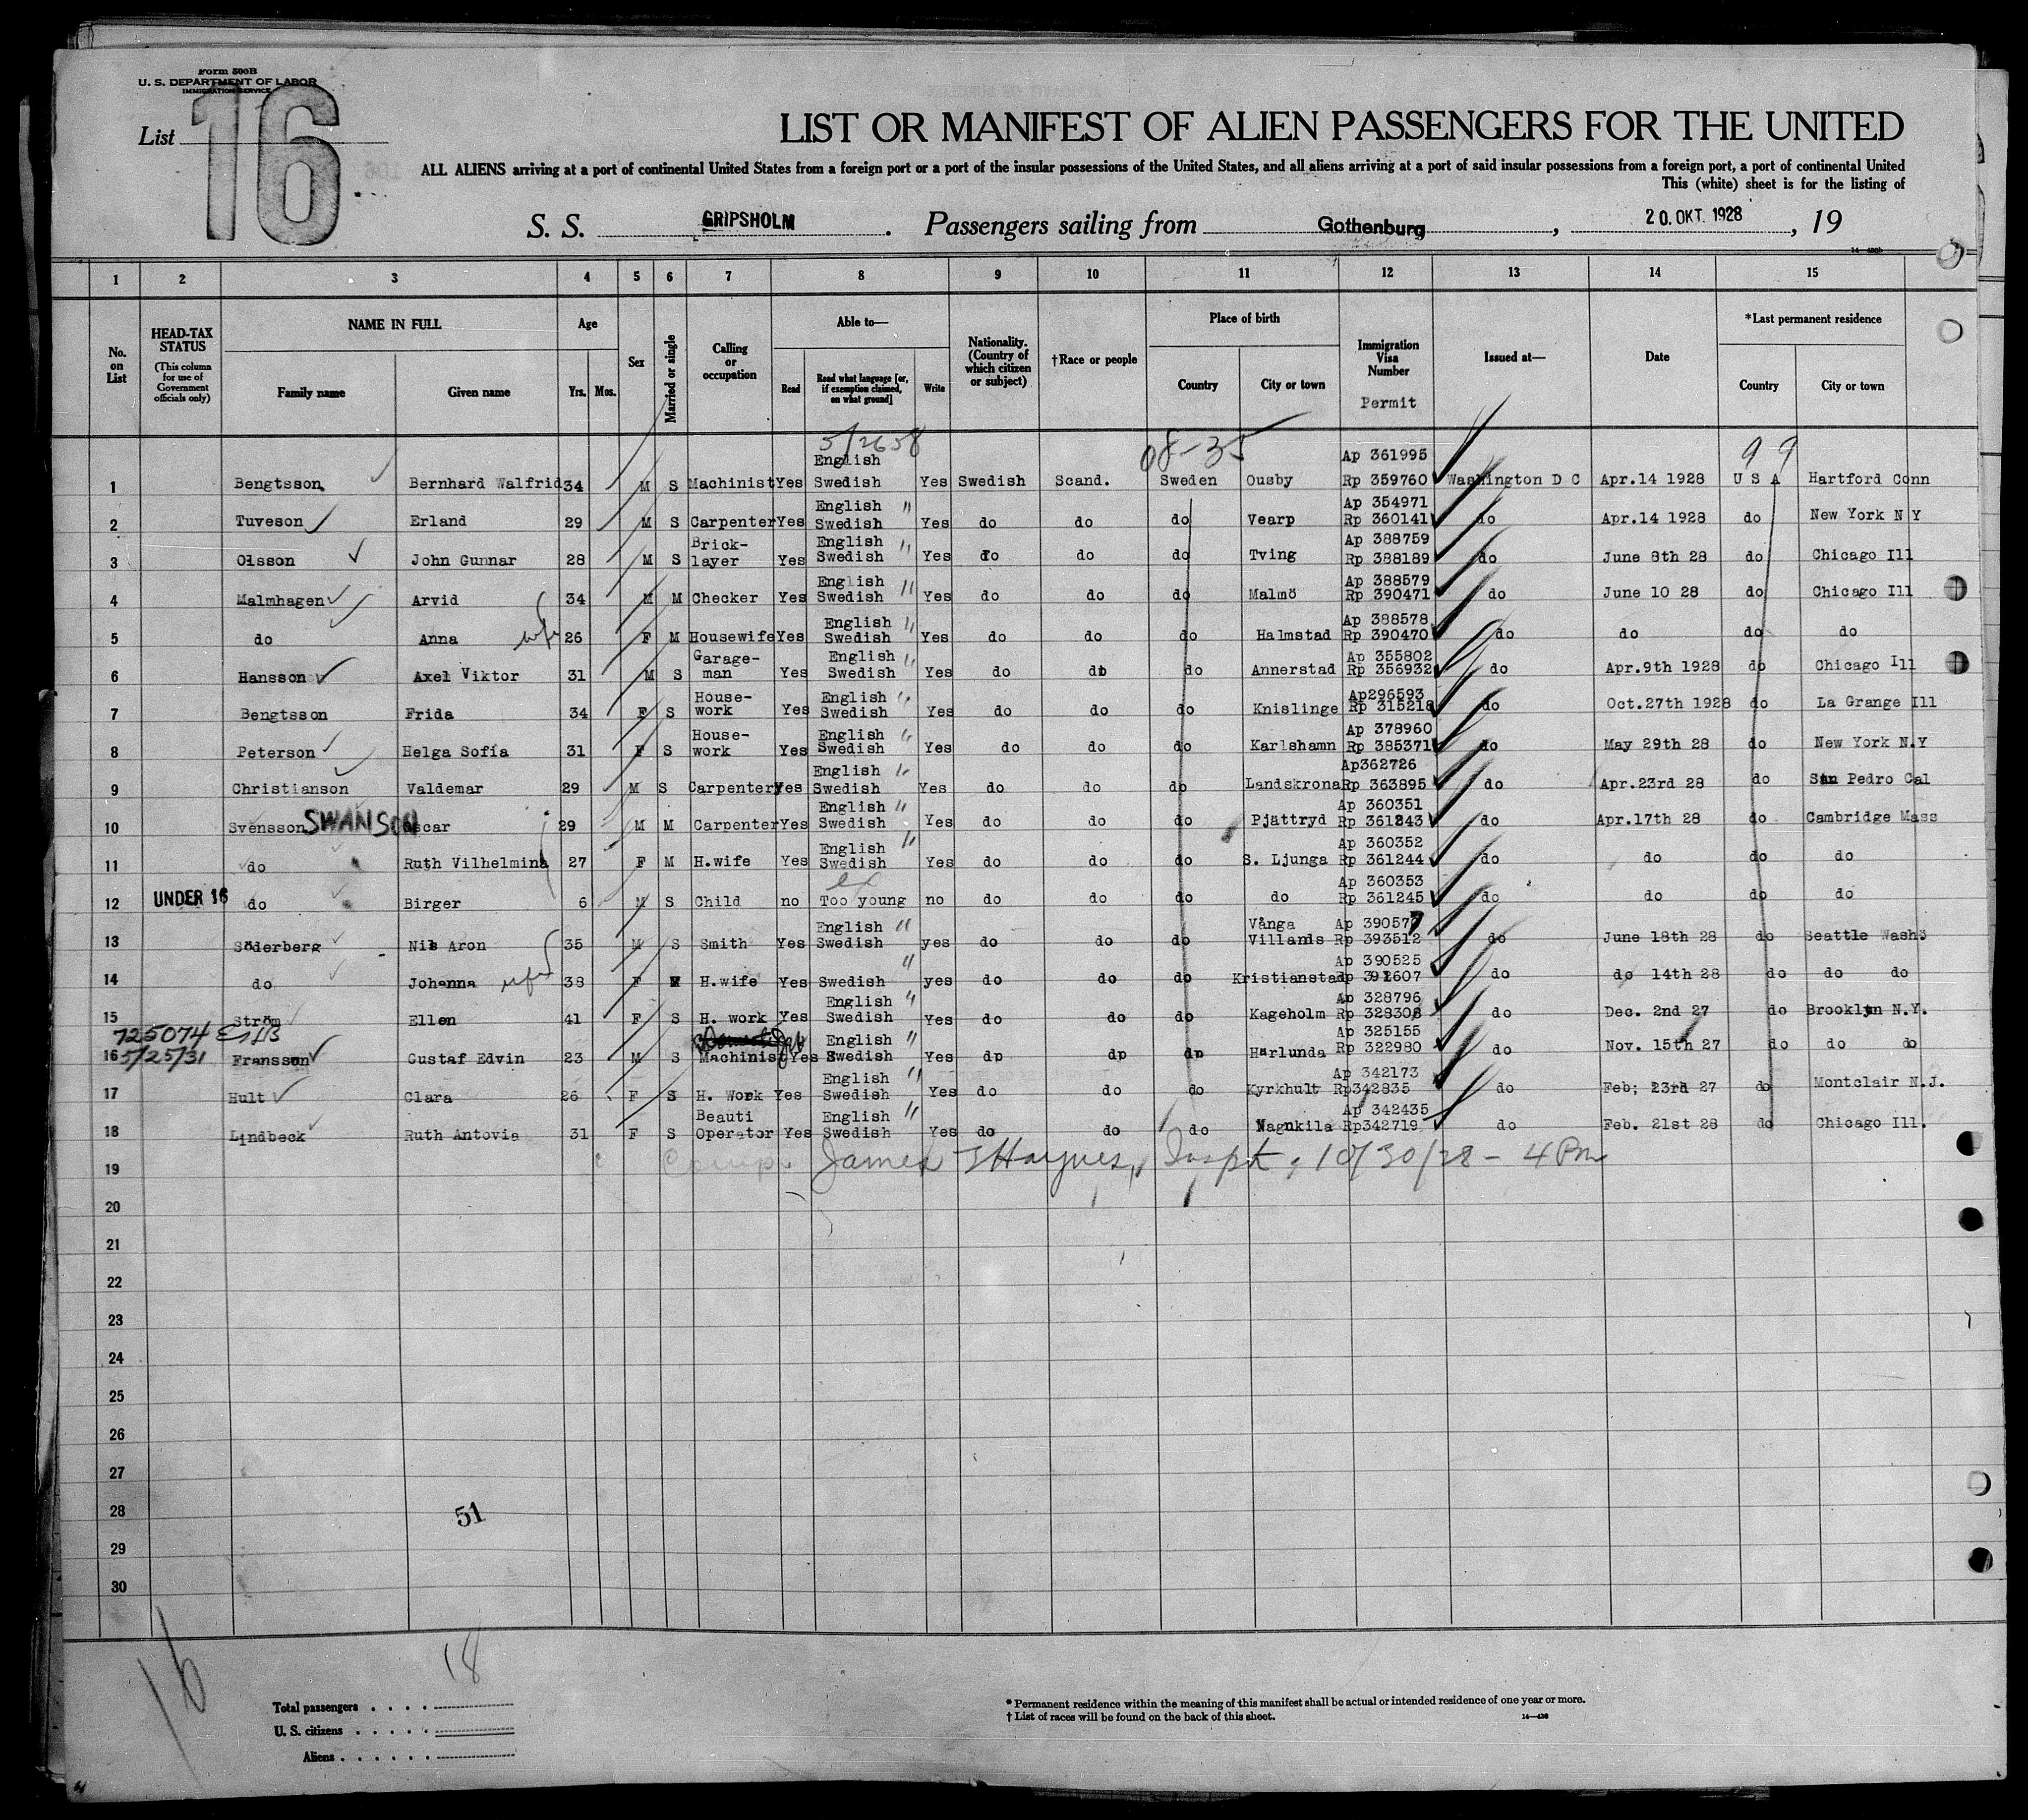 Form 500B
U. S. DEPARTMENT OF LABOR
IMMIGRATION SERVICE
List 16
LIST OR MANIFEST OF ALIEN PASSENGERS FOR THE UNITED
ALL ALIENS arriving at a port of continental United States from a foreign port or a port of the insular possessions of the United States, and all aliens arriving at a port of said insular possessions from a foreign port, a port of continental United
This (white) sheet is for the listing of
S. S. GRIPSHOLM. Passengers sailing from Gothenburg, 20. OKT. 1928, 19
1 2 3 4 5 6 7 8 9 10 11 12 13 14 15
No. on List
HEAD-TAX STATUS (This column for use of Government officials only)
NAME IN FULL Family name Given name
Age Yrs. Mos.
Sex
Married or single
Calling or occupation
Able to— Read Read what language [or, if exemption claimed, on what ground] Write
Nationality. (Country of which citizen or subject)
†Race or people
Place of birth Country City or town
Immigration Visa Number Permit
Issued at—
Date
*Last permanent residence Country City or town
5/2658 08-35 99
English Ap 361995
1 Bengtsson Bernhard Walfrid 34 M S Machinist Yes Swedish Yes Swedish Scand. Sweden Ousby Rp 359760 Washington D C Apr.14 1928 U S A Hartford Conn
English " Ap 354971
2 Tuveson Erland 29 M S Carpenter Yes Swedish Yes do do do Vearp Rp 360141 do Apr.14 1928 do New York N Y
Brick- English " Ap 388759
3 Olsson John Gunnar 28 M S layer Yes Swedish Yes do do do Tving Rp 388189 do June 8th 28 do Chicago Ill
English " Ap 388579
4 Malmhagen Arvid 34 M M Checker Yes Swedish Yes do do do Malmö Rp 390471 do June 10 28 do Chicago Ill
English " Ap 388578
5 do Anna wife 26 F M Housewife Yes Swedish Yes do do do Halmstad Rp 390470 do do do do
Garage- English " Ap 355802
6 Hansson Axel Viktor 31 M S man Yes Swedish Yes do do do Annerstad Rp 356932 do Apr.9th 1928 do Chicago Ill
House- English " Ap296593
7 Bengtsson Frida 34 F S work Yes Swedish Yes do do do Knislinge Rp 315218 do Oct.27th 1928 do La Grange Ill
House- English " Ap 378960
8 Peterson Helga Sofia 31 F S work Yes Swedish Yes do do do Karlshamn Rp 385371 do May 29th 28 do New York N.Y
English " Ap362726
9 Christianson Valdemar 29 M S Carpenter Yes Swedish Yes do do do Landskrona Rp 363895 do Apr.23rd 28 do San Pedro Cal
English " Ap 360351
10 Svensson SWANSON Oscar 29 M M Carpenter Yes Swedish Yes do do do Pjättryd Rp 361243 do Apr.17th 28 do Cambridge Mass
English " Ap 360352
11 do Ruth Vilhelmina 27 F M H.wife Yes Swedish Yes do do do S. Ljunga Rp 361244 do do do do
ex Ap 360353
12 UNDER 16 do Birger 6 M S Child no Too young no do do do do Rp 361245 do do do do
English " Vånga Ap 390577
13 Söderberg Nils Aron 35 M S Smith Yes Swedish yes do do do Villands Rp 393512 do June 18th 28 do Seattle Wash
" Ap 390525
14 do Johanna wife 38 F M H.wife Yes Swedish yes do do do Kristianstad 391607 do do 14th 28 do do do
English " Ap 328796
15 Ström Ellen 41 F S H. work Yes Swedish Yes do do do Kageholm Rp 328308 do Dec. 2nd 27 do Brooklyn N.Y.
725074 English " Ap 325155
16 5/25/31 Fransson Gustaf Edvin 23 M S Machinist Yes Swedish Yes do do do Härlunda Rp 322980 do Nov. 15th 27 do do do
English " Ap 342173
17 Hult Clara 26 F S H. Work Yes Swedish Yes do do do Kyrkhult Rp342835 do Feb; 23rd 27 do Montclair N.J.
Beauti English " Ap 342435
18 Lindbeck Ruth Antovia 31 F S Operator Yes Swedish Yes do do do Nagnkila Rp342719 do Feb. 21st 28 do Chicago Ill.
19 James Haynes, Inspt, 10/30/28 - 4 Pm
20
21
22
23
24
25
26
27
28 51
29
30
16 18
Total passengers
U. S. citizens
Aliens
* Permanent residence within the meaning of this manifest shall be actual or intended residence of one year or more.
† List of races will be found on the back of this sheet.